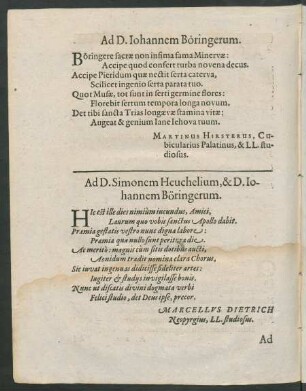 Ad D. Iohannem Böringerum.
Böringere sacræ non infima fama Minervæ:
Accipe quod confert turba novena decus.
Accipe Pieridum quæ nectit serta caterva,
Scilicet ingenio serta parata tuo.
Quot Musæ, tot sunt in serti germine flores:
Florebit sertum tempora longa novum.
Det tibi sancta Trias longævæ stamina vitæ:
Augeat & genium Iane Iehova tuum.
MARTINUS HIRSTERUS, Cu-
bicularius Palatinus, & LL. stu-
diosus.
Ad D. Simonem Heuchelium, & D. Io-
hannem Böringerum.
HIc est ille dies nimiùm iucundus, Amici,
Laurum quo vobis sanctus Apollo dabit.
Præmia gestatis vestro nunc digna labore:
Præmia quæ nullo sunt peritura die.
Ac meritò: magnis cùm sitis dotibus aucti,
Aonidum tradit nomina clara Chorus,
Sic iuvat ingenuas didicisse fideliter artes:
Iugiter & studijs invigilasse bonis.
Nunc ut discatis divini dogmata verbi
Felici studio, det Deus ipse, precor.
MARCELLVS DIETRICH
Neopyrgius, LL. studiosus.
Ad